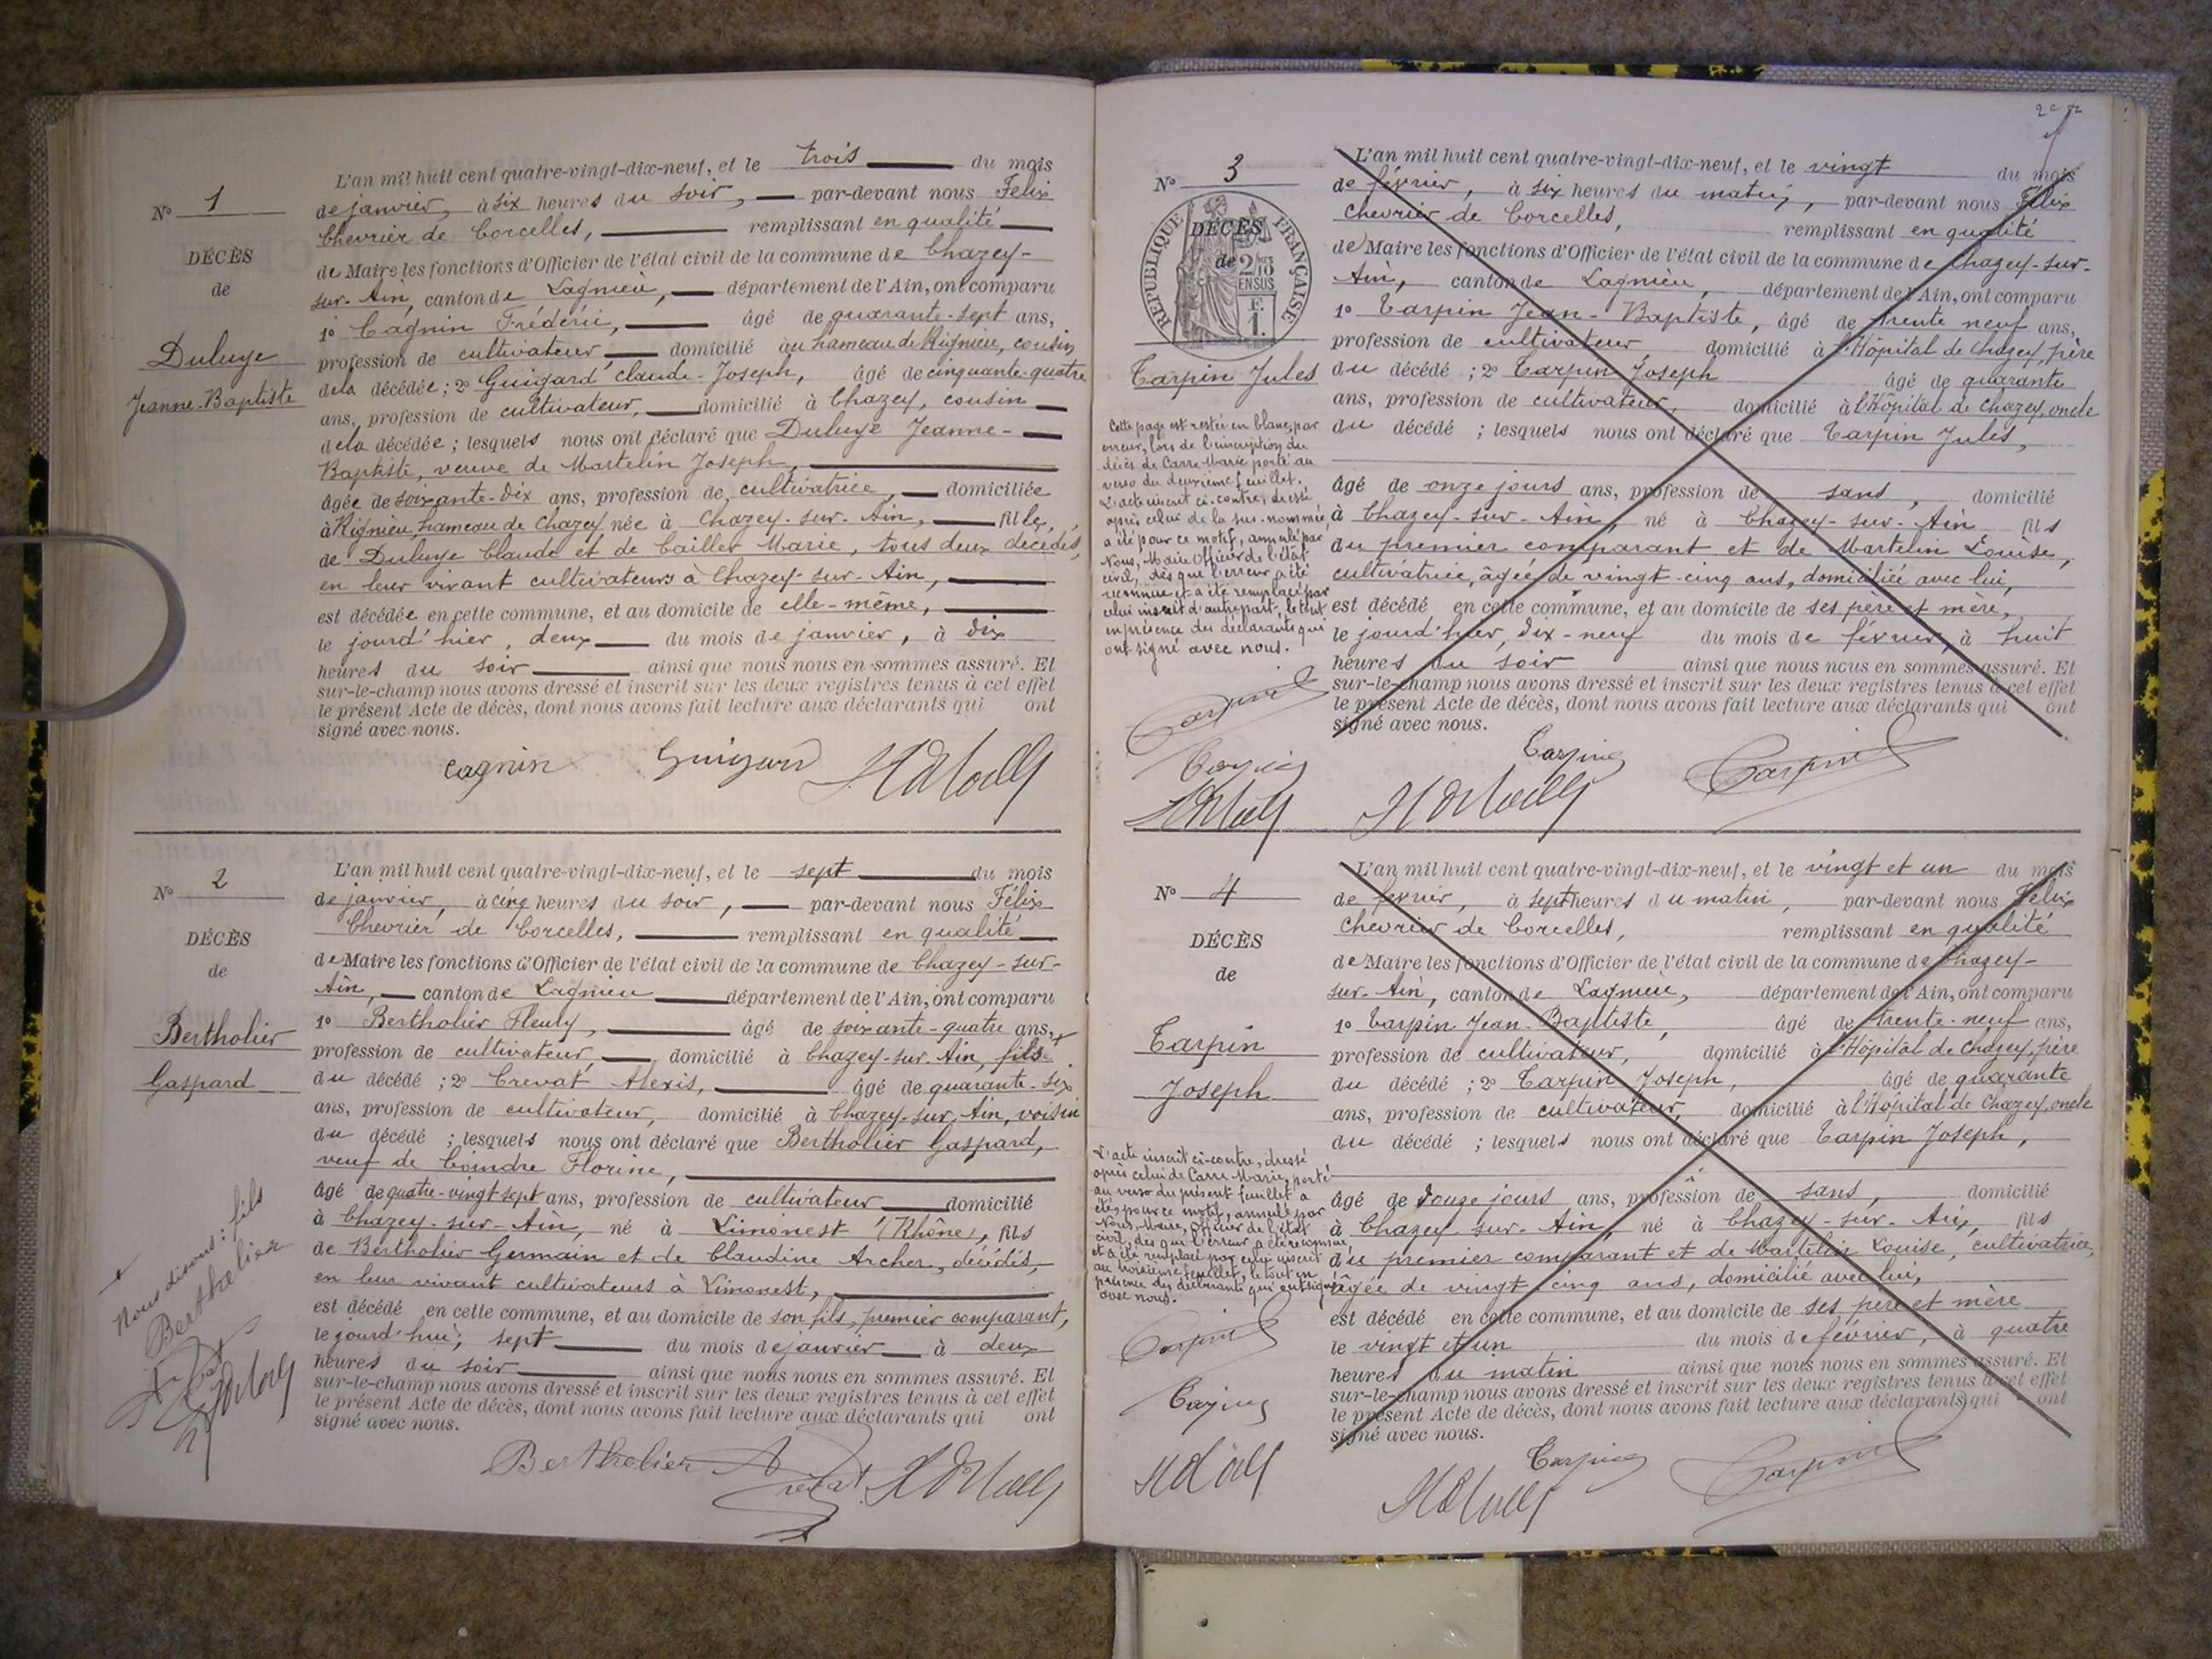 N° 1
DÉCÈS
de
Duluye
Jeanne-Baptiste
L'an mil huit cent quatre-vingt-dix-neuf, et le trois du mois
de janvier, à six heures du soir, par-devant nous Félix
Chevrier de Corcelles, remplissant en qualité
de Maire les fonctions d'Officier de l'état civil de la commune de Chazey-
sur-Ain, canton de Lagnieu, département de l'Ain, ont comparu
1° Cagnin Frédéric, âgé de quarante-sept ans,
profession de cultivateur, domicilié au hameau de Rignieu, cousin
de la décédée; 2° Guigard Claude-Joseph, âgé de cinquante-quatre
ans, profession de cultivateur, domicilié à Chazey, cousin
de la décédée; lesquels nous ont déclaré que Duluye Jeanne-
Baptiste, veuve de Martelin Joseph,
âgée de soixante-dix ans, profession de cultivatrice, domiciliée
à Rignieu, hameau de Chazey née à Chazey-sur-Ain, fille,
de Duluye Claude et de Caillet Marie, tous deux décédés,
en leur vivant cultivateurs à Chazey-sur-Ain,
est décédée en cette commune, et au domicile de elle-même,
le jourd'hier, deux du mois de janvier, à dix
heures du soir ainsi que nous nous en sommes assuré. Et
sur-le-champ nous avons dressé et inscrit sur les deux registres tenus à cet effet
le présent Acte de décès, dont nous avons fait lecture aux déclarants qui ont
signé avec nous.
Cagnin Guigard
N° 2
DÉCÈS
de
Bertholier
Gaspard
L'an mil huit cent quatre-vingt-dix-neuf, et le sept du mois
de janvier, à cinq heures du soir, par-devant nous Félix
Chevrier de Corcelles, remplissant en qualité
de Maire les fonctions d'Officier de l'état civil de la commune de Chazey-sur-
Ain, canton de Lagnieu département de l'Ain, ont comparu
1° Bertholier Fleury, âgé de soixante-quatre ans,
profession de cultivateur, domicilié à Chazey-sur-Ain, fils
du décédé; 2° Crevat Alexis, âgé de quarante-six
ans, profession de cultivateur, domicilié à Chazey-sur-Ain, voisin
du décédé; lesquels nous ont déclaré que Bertholier Gaspard,
veuf de Coindre Florine,
âgé de quatre-vingt sept ans, profession de cultivateur domicilié
à Chazey-sur-Ain, né à Limonest (Rhône), fils
de Bertholier Germain et de Claudine Archer, décédés,
en leur vivant cultivateurs à Limonest,
est décédé en cette commune, et au domicile de son fils, premier comparant,
le jourd'hui, sept du mois de janvier à deux
heures du soir ainsi que nous nous en sommes assuré. Et
sur-le-champ nous avons dressé et inscrit sur les deux registres tenus à cet effet
le présent Acte de décès, dont nous avons fait lecture aux déclarants qui ont
signé avec nous.
Nous disons: fils
Bertholier
Bertholier
N° 3
RÉPUBLIQUE FRANÇAISE
2/10
EN SUS
F.
1.
DÉCÈS
de
Tarpin Jules
Cette page est restée en blanc, par
erreur, lors de l'inscription du
décès de Carre Marie porté au
verso du deuxième feuillet.
L'acte inscrit ci-contre, dressé
après celui de la sus-nommée,
a été pour ce motif, annulé par
Nous, Maire Officier de l'état
civil, dès que l'erreur a été
reconnue et a été remplacé par
celui inscrit d'autre part, le tout
en présence des déclarants qui
ont signé avec nous.
Tarpin
Tarpin
L'an mil huit cent quatre-vingt-dix-neuf, et le vingt du mois
de février, à six heures du matin, par-devant nous Félix
Chevrier de Corcelles, remplissant en qualité
de Maire les fonctions d'Officier de l'état civil de la commune de Chazey-sur-
Ain, canton de Lagnieu, département de l'Ain, ont comparu
1° Tarpin Jean-Baptiste, âgé de trente neuf ans,
profession de cultivateur domicilié à l'Hôpital de Chazey, père
du décédé; 2° Tarpin Joseph âgé de quarante
ans, profession de cultivateur, domicilié à l'Hôpital de Chazey, oncle
du décédé; lesquels nous ont déclaré que Tarpin Jules,
âgé de onze jours ans, profession de sans, domicilié
à Chazey-sur-Ain, né à Chazey-sur-Ain fils
du premier comparant et de Martelin Louise,
cultivatrice, âgée de vingt-cinq ans, domiciliée avec lui,
est décédé en cette commune, et au domicile de ses père et mère,
le jourd'hier, dix-neuf du mois de février, à huit
heures du soir ainsi que nous nous en sommes assuré. Et
sur-le-champ nous avons dressé et inscrit sur les deux registres tenus à cet effet
le présent Acte de décès, dont nous avons fait lecture aux déclarants qui ont
signé avec nous.
Tarpin Tarpin
N° 4
DÉCÈS
de
Tarpin
Joseph
L'acte inscrit ci-contre, dressé
après celui de Carre Marie, porté
au verso du présent feuillet a
été, pour ce motif, annulé par
Nous, Maire, officier de l'état
civil, dès que l'erreur a été reconnue,
et a été remplacé par celui inscrit
au troisième feuillet, le tout en
présence des déclarants qui ont signé
avec nous.
Tarpin
Tarpin
L'an mil huit cent quatre-vingt-dix-neuf, et le vingt et un du mois
de février, à sept heures du matin, par-devant nous Félix
Chevrier de Corcelles, remplissant en qualité
de Maire les fonctions d'Officier de l'état civil de la commune de Chazey-
sur-Ain, canton de Lagnieu, département de l'Ain, ont comparu
1° Tarpin Jean-Baptiste, âgé de trente-neuf ans,
profession de cultivateur, domicilié à l'Hôpital de Chazey, père
du décédé; 2° Tarpin Joseph, âgé de quarante
ans, profession de cultivateur, domicilié à l'Hôpital de Chazey, oncle
du décédé; lesquels nous ont déclaré que Tarpin Joseph,
âgé de douze jours ans, profession de sans, domicilié
à Chazey-sur-Ain, né à Chazey-sur-Ain, fils
du premier comparant et de Martelin Louise, cultivatrice,
âgée de vingt cinq ans, domicilié avec lui,
est décédé en cette commune, et au domicile de ses père et mère
le vingt et un du mois de février, à quatre
heures du matin ainsi que nous nous en sommes assuré. Et
sur-le-champ nous avons dressé et inscrit sur les deux registres tenus à cet effet
le présent Acte de décès, dont nous avons fait lecture aux déclarants qui ont
signé avec nous.
Tarpin Tarpin